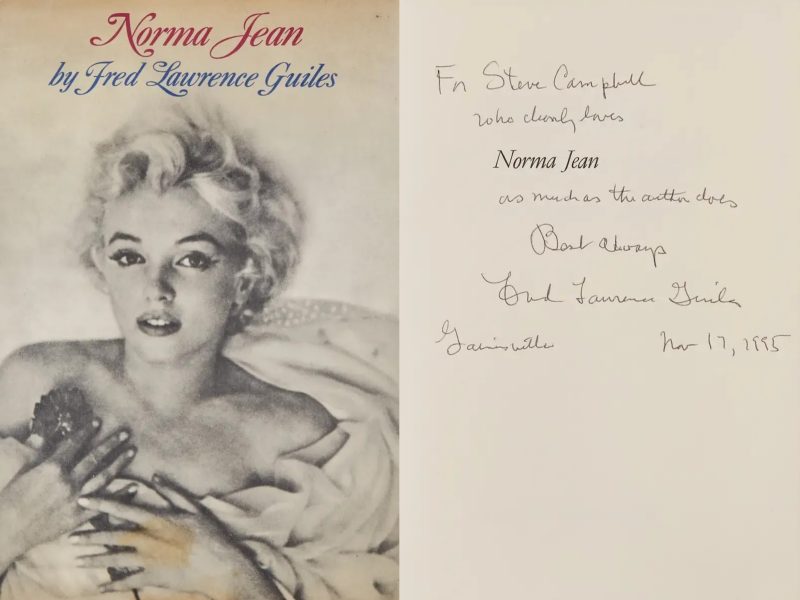 Norma Jean
by Fred Lawrence Guiles
For Steve Campbell
who clearly loves
Norma Jean
as much as the author does
Best always
Fred Lawrence Guiles
Gainesville Nov 17, 1995